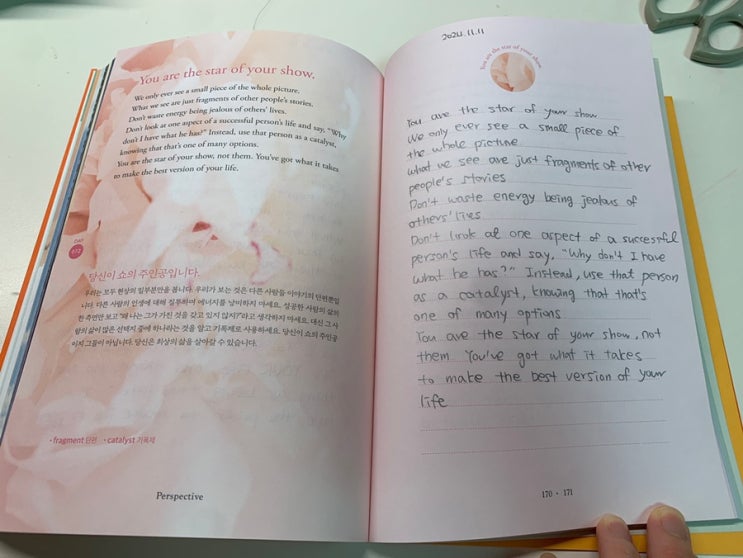 You are the star of your show.
We only ever see a small piece of the whole picture.
What we see are just fragments of other people's stories.
Don't waste energy being jealous of others' lives.
Don't look at one aspect of a successful person's life and say, "Why
don't I have what he has?" Instead, use that person as a catalyst,
knowing that that's one of many options.
You are the star of your show, not them. You've got what it takes
to make the best version of your life.
DAY
당신이 쇼의 주인공입니다.
우리는 모두 현상의 일부분만을 봅니다. 우리가 보는 것은 다른 사람들 이야기의 단편뿐입
니다. 다른 사람의 인생에 대해 질투하며 에너지를 낭비하지 마세요. 성공한 사람의 삶의
한 측면만 보고 "왜 나는 그가 가진 것을 갖고 있지 않지?"라고 생각하지 마세요. 대신 그 사
람의 삶이 많은 선택지 중에 하나라는 것을 알고 기폭제로 사용하세요. 당신이 쇼의 주인공
이지 그들이 아닙니다. 당신은 최상의 삶을 살아갈 수 있습니다.
• fragment 단편 • catalyst 기폭제
Perspective
2024.11.11
You are the star of your show.
You are the star of your show
We only ever see a small piece of
the whole picture
What we see are just fragments of other
people's stories
Don't waste energy being jealous of
others' lives
Don't look at one aspect of a successful
person's life and say, "Why don't I have
what he has?" Instead, use that person
as a catalyst, knowing that that's
one of many options
You are the star of your show, not
them You've got what it takes
to make the best version of your
life
170 • 171